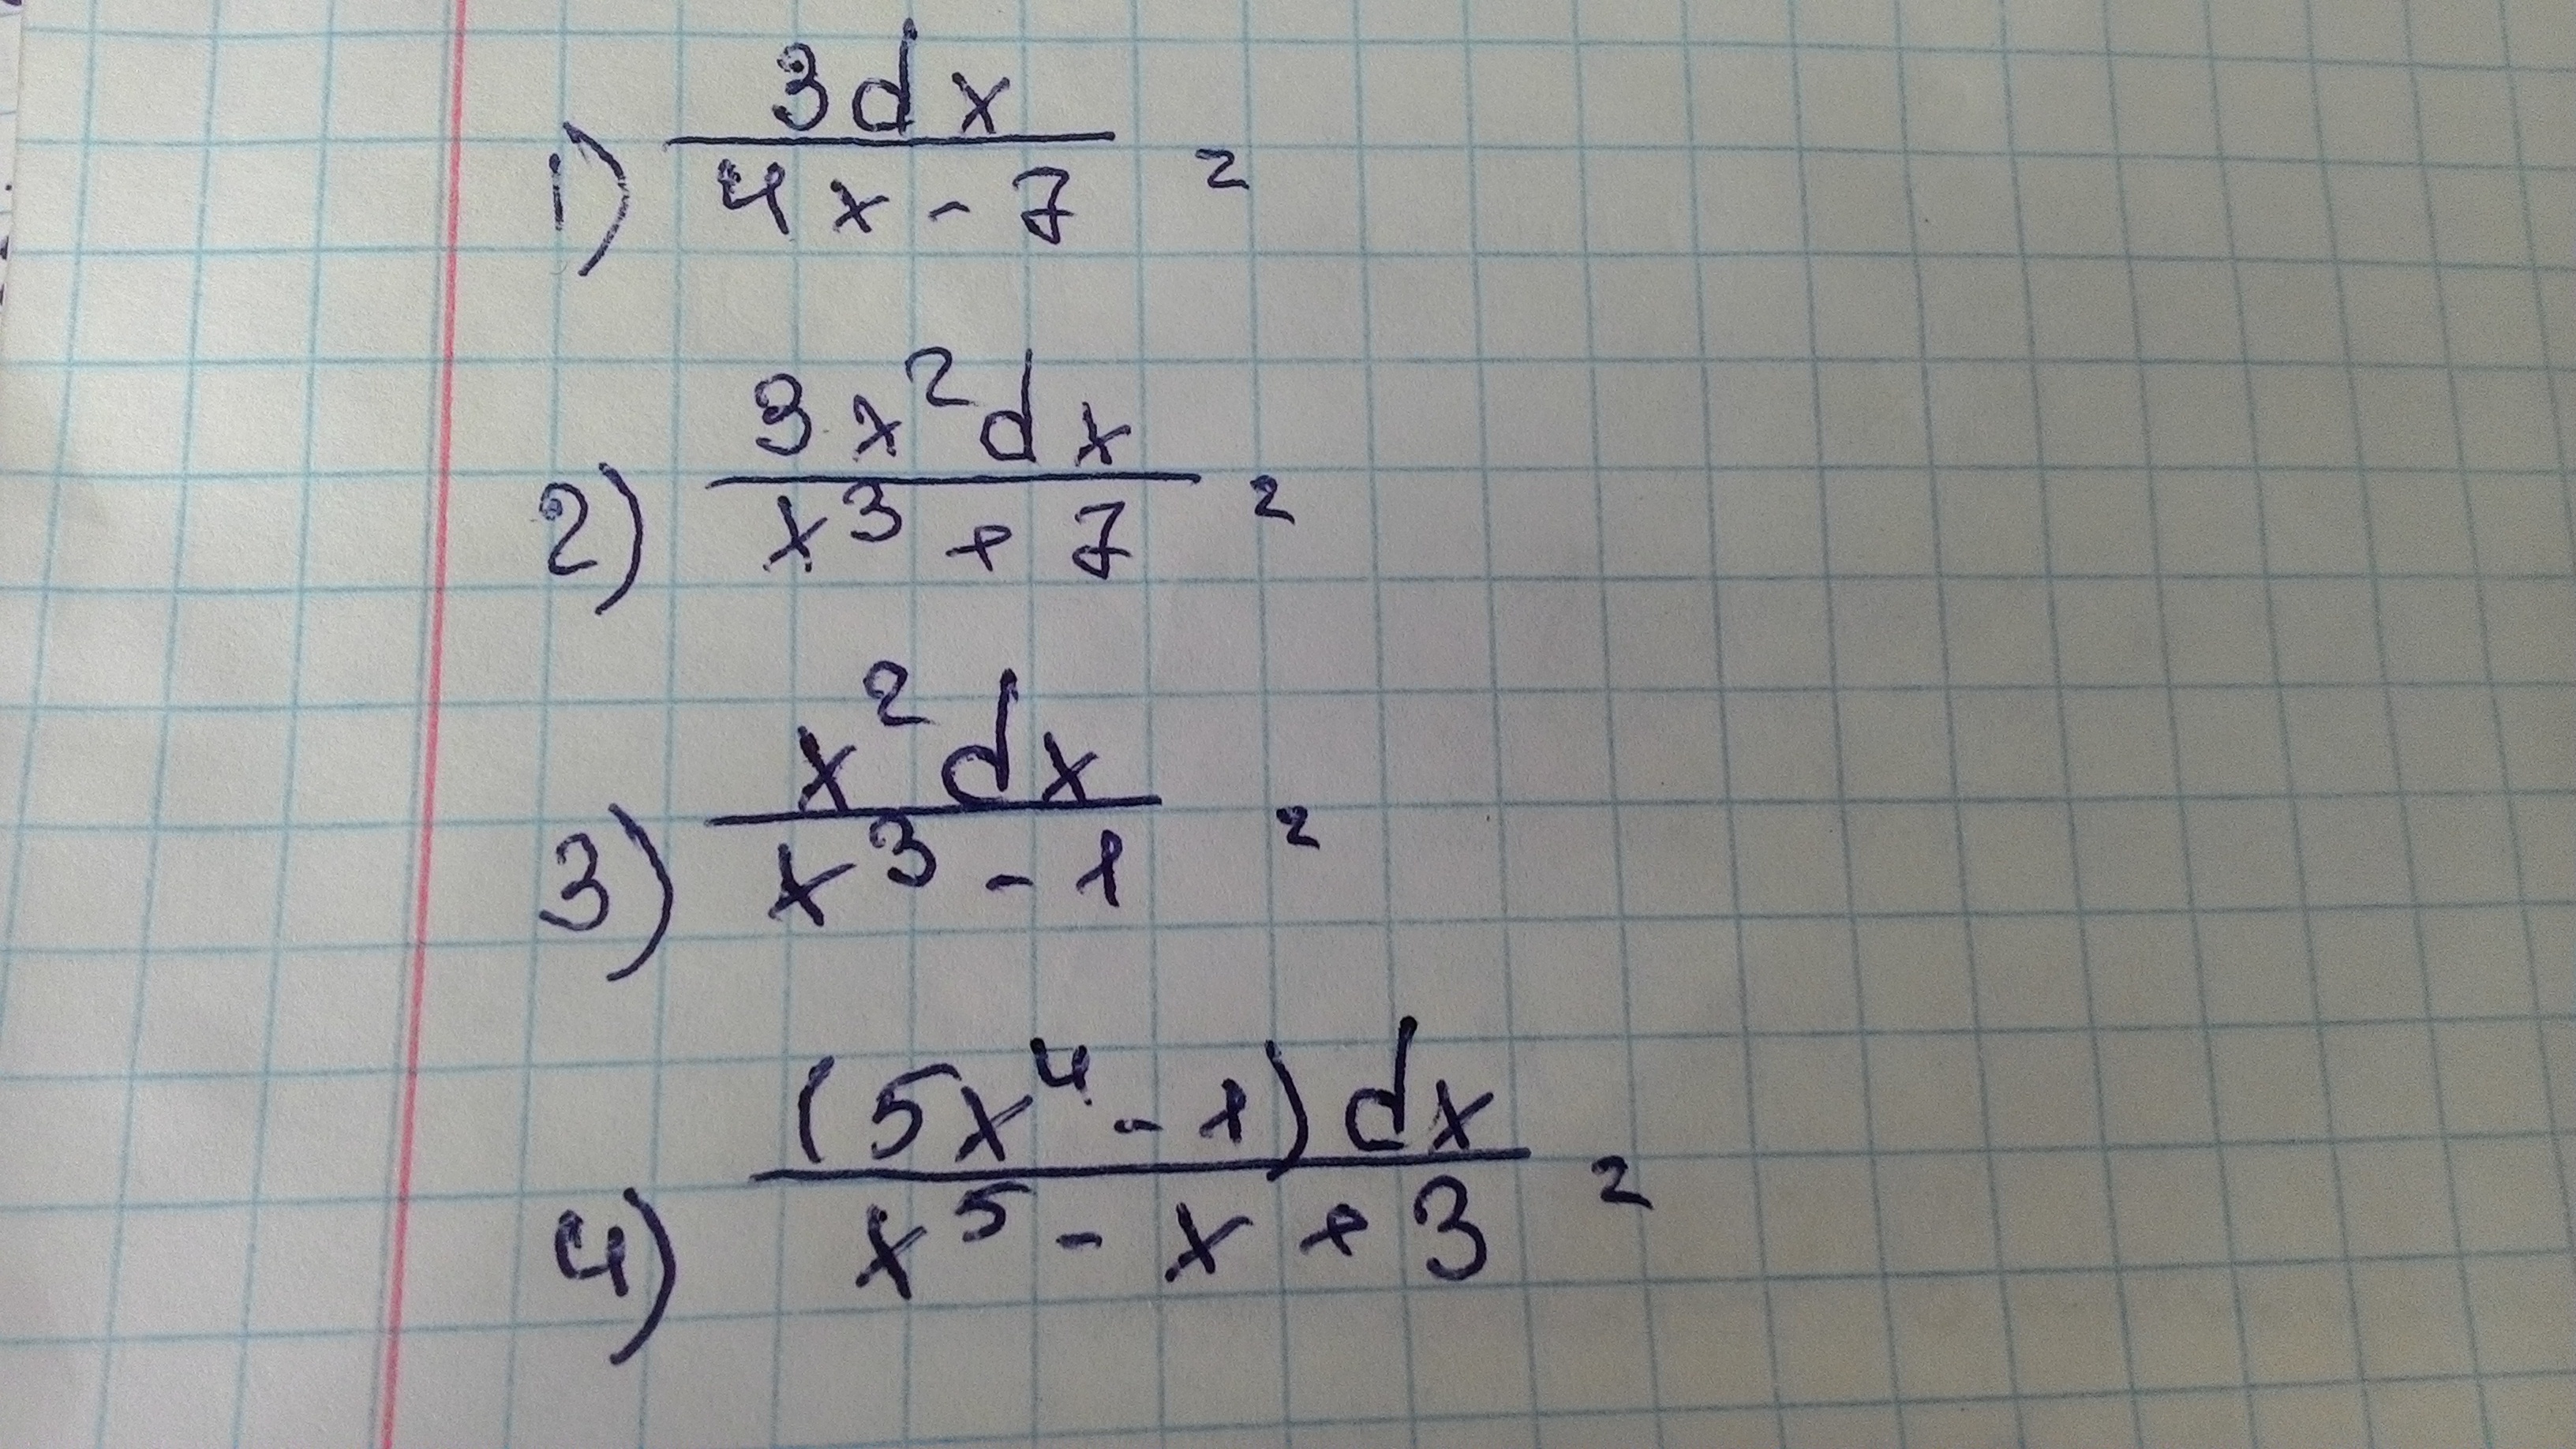 1) 3dx / 4x - 7 =
2) 3x²dx / x³ + 7 =
3) x²dx / x³ - 1 =
4) (5x⁴ - 1)dx / x⁵ - x + 3 =